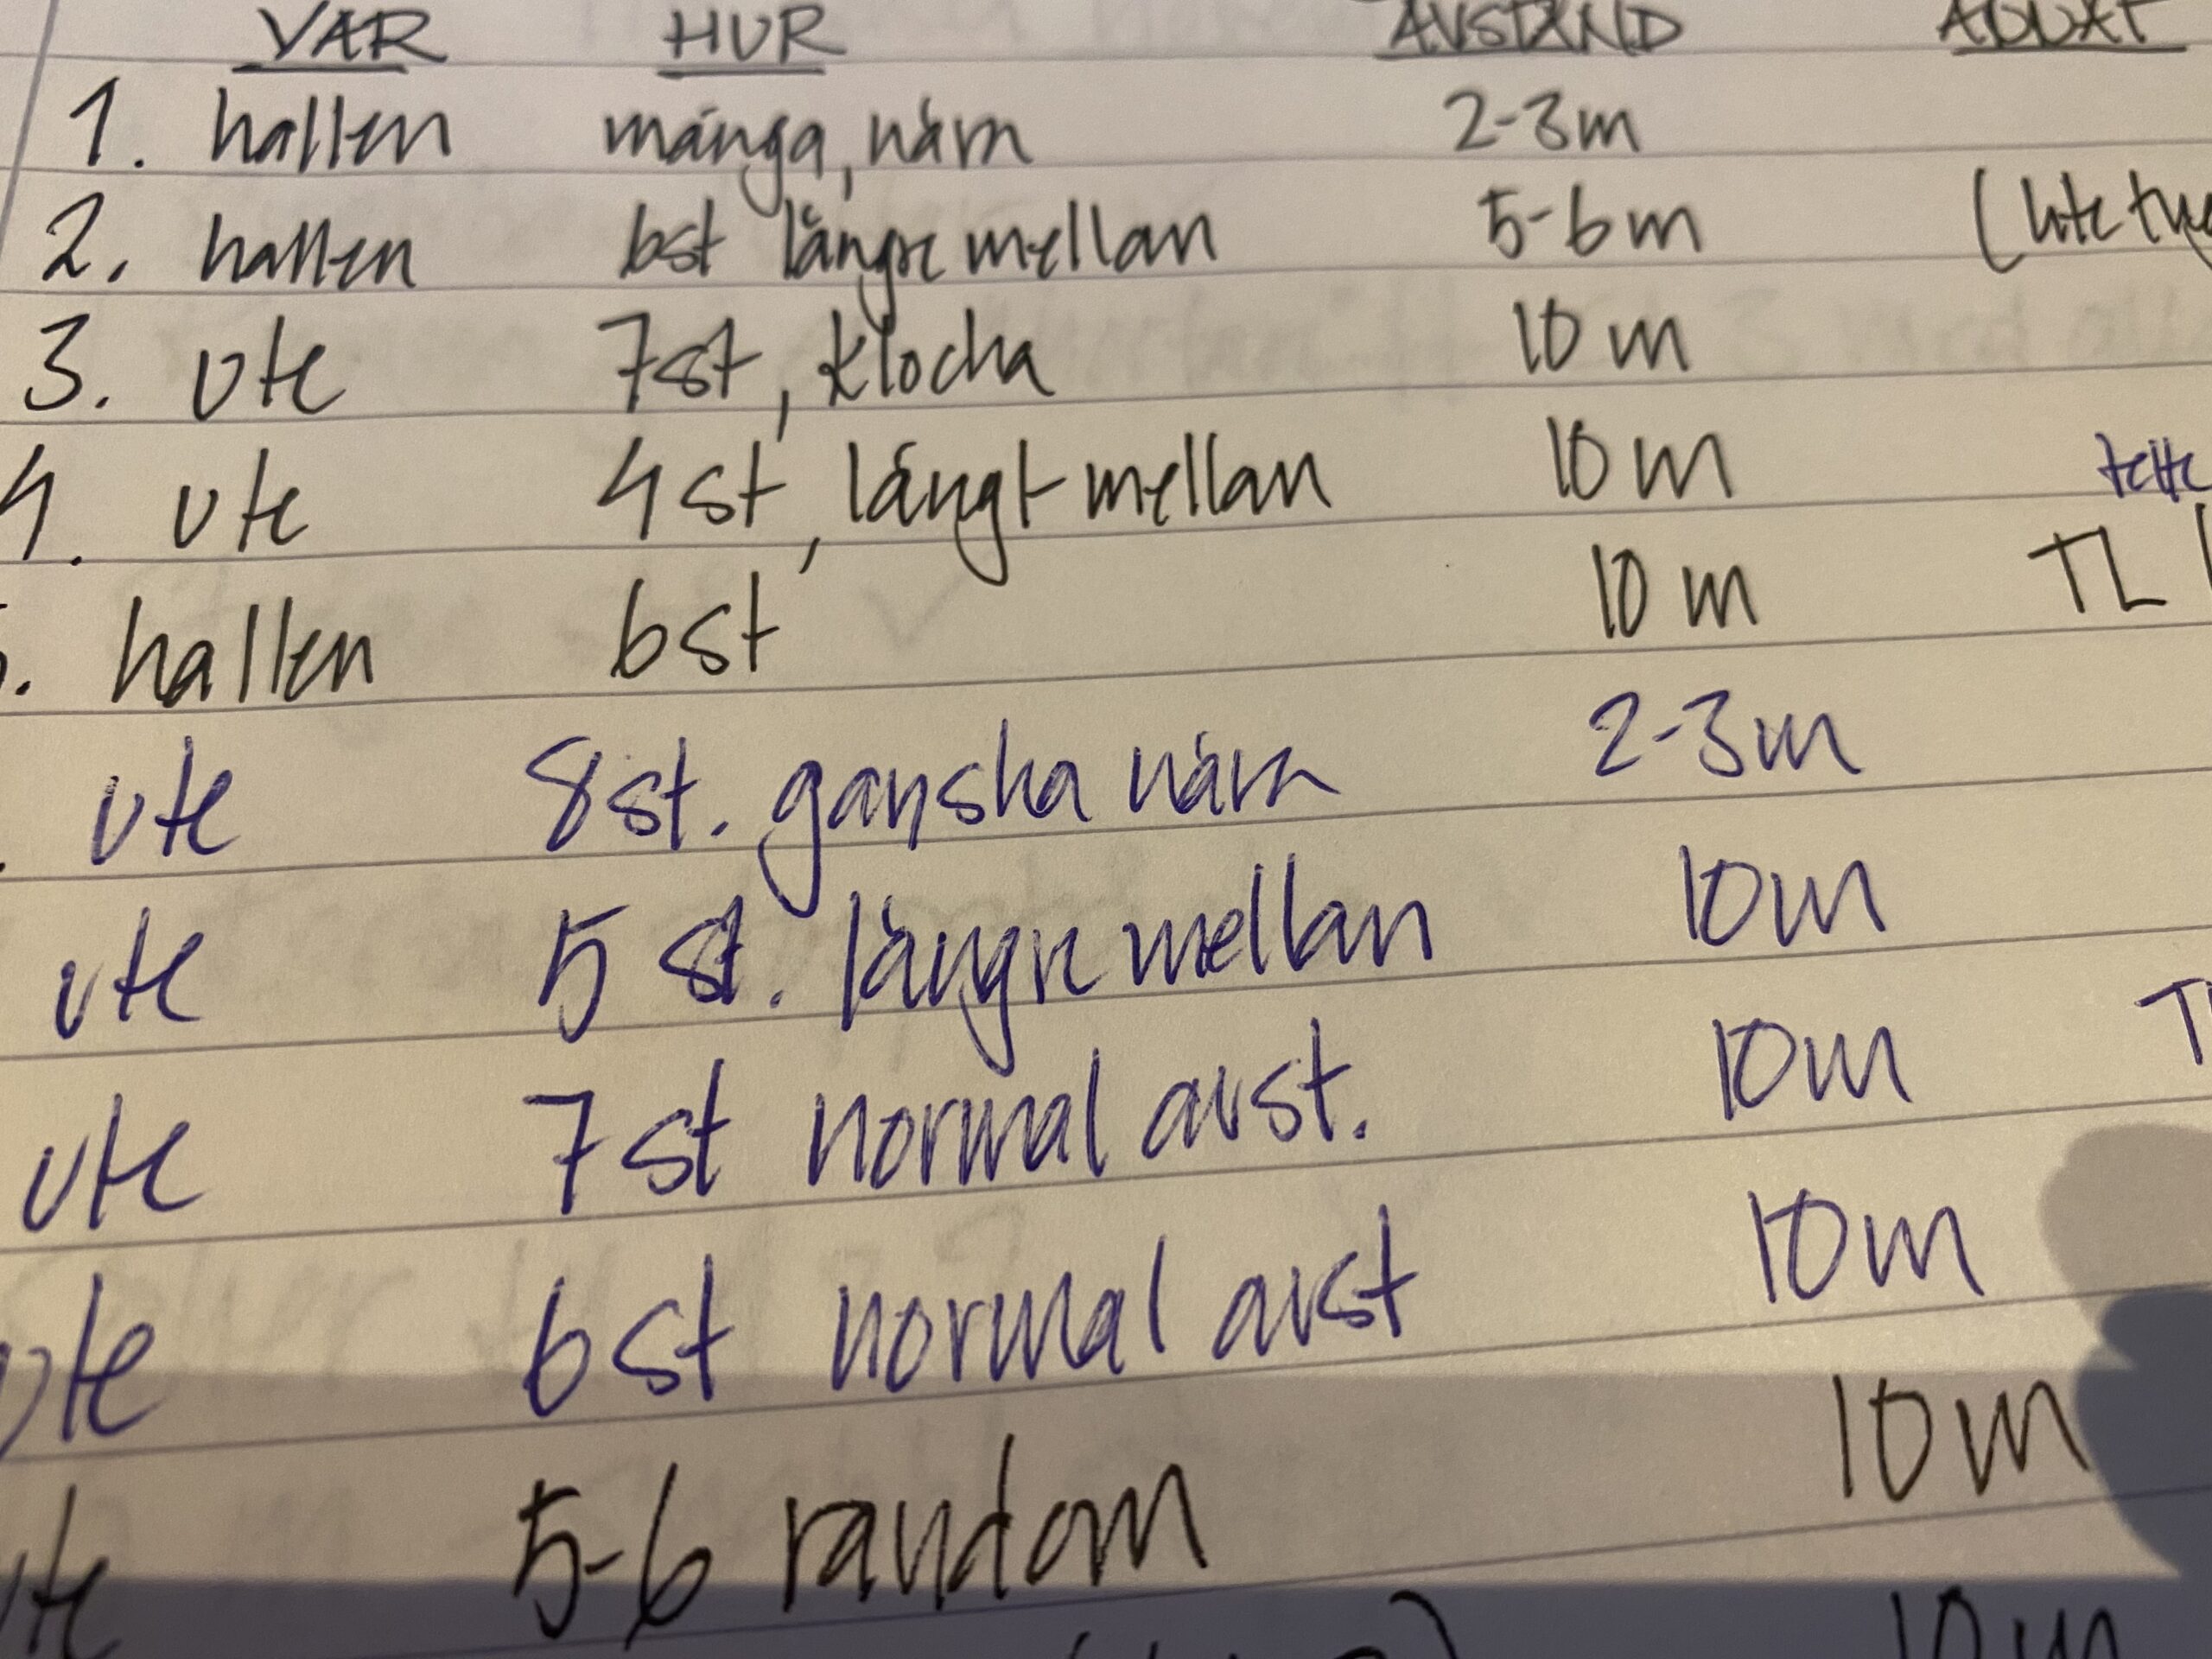 VAR HUR AVSTÅND
1. hallen många, nära 2-3m
2. hallen 6st längre mellan 5-6m (lite
3. ute 7st, klocka 10 m
4. ute 4st, långt mellan 10 m
hallen 6st 10 m TL
ute 8st. ganska nära 2-3m
ute 5 st. längre mellan 10m
ute 7st normal avst. 10m
ute 6st normal avst 10m
ute 5-6 random 10m
10m